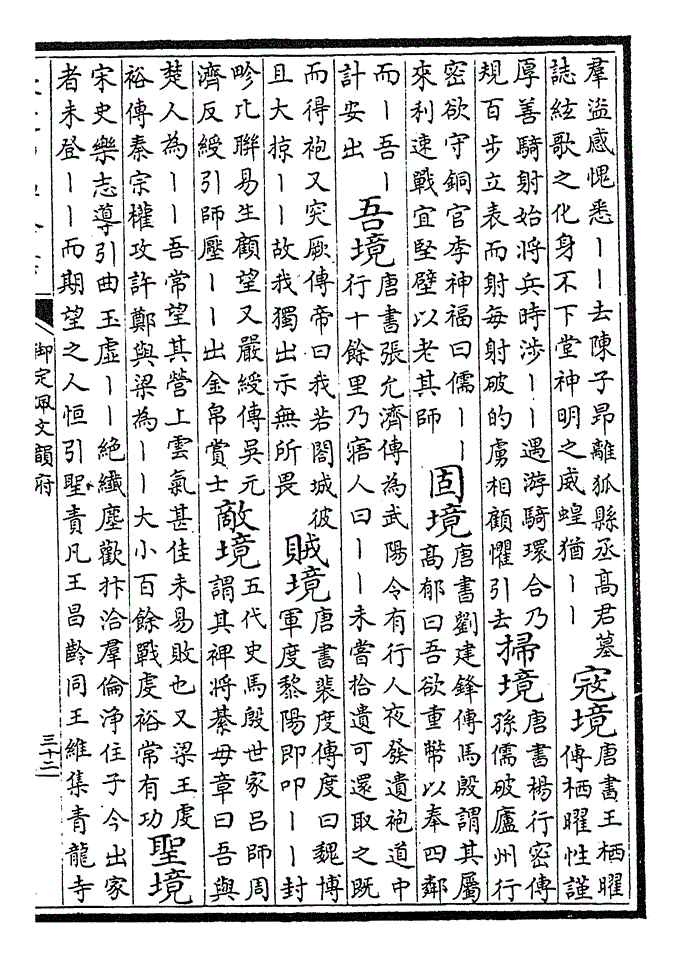 羣盜感愧悉丨丨去陳子昻離狐縣丞髙君墓
誌絃歌之化身不下堂神明之威蝗猶丨丨
寇境
唐書王栖曜
傳栖曜性謹
厚善騎射始將兵時涉丨丨遇游騎環合乃
規百步立表而射每射破的虜相顧懼引去
掃境
唐書楊行密傳
孫儒破廬州行
密欲守銅官李神福曰儒丨丨
來利速戰宜堅壁以老其師
固境
唐書劉建鋒傳馬殷謂其屬
髙郁曰吾欲重幣以奉四鄰
而丨吾丨
計安出
吾境
唐書張允濟傳為武陽令有行人夜發遺袍道中
行十餘里乃寤人曰丨丨未嘗拾遺可還取之既
而得袍又突厥傳帝曰我若闔城彼
且大掠丨丨故我獨出示無所畏
賊境
唐書裴度傳度曰魏博
軍度黎陽即叩丨丨封
畛比聯易生顧望又嚴綬傳吳元
濟反綬引師壓丨丨出金帛賞士
敵境
五代史馬殷世家吕師周
謂其裨將綦毋章曰吾與
楚人為丨丨吾常望其營上雲氣甚佳未易敗也又梁王虔
裕傳秦宗權攻許鄭與梁為丨丨大小百餘戰虔裕常有功
聖境
宋史樂志導引曲玉虛丨丨絶纖塵歡抃洽羣倫浄住子今出家
者未登丨丨而期望之人恒引聖責凡王昌齡同王維集青龍寺
御定佩文韻府
三十二